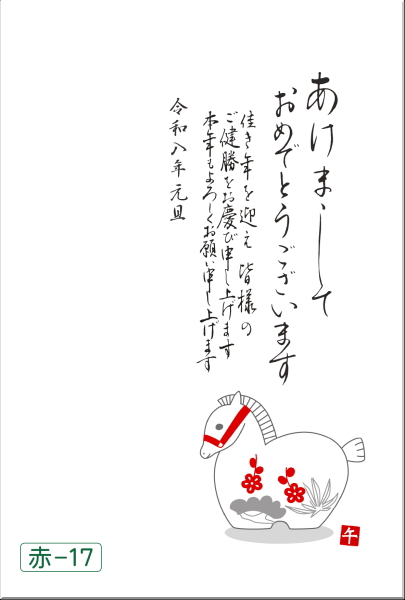 あけまして
おめでとうございます
佳き年を迎え 皆様の
ご健勝をお慶び申し上げます
本年もよろしくお願い申し上げます
令和八年 元旦
午
赤-17